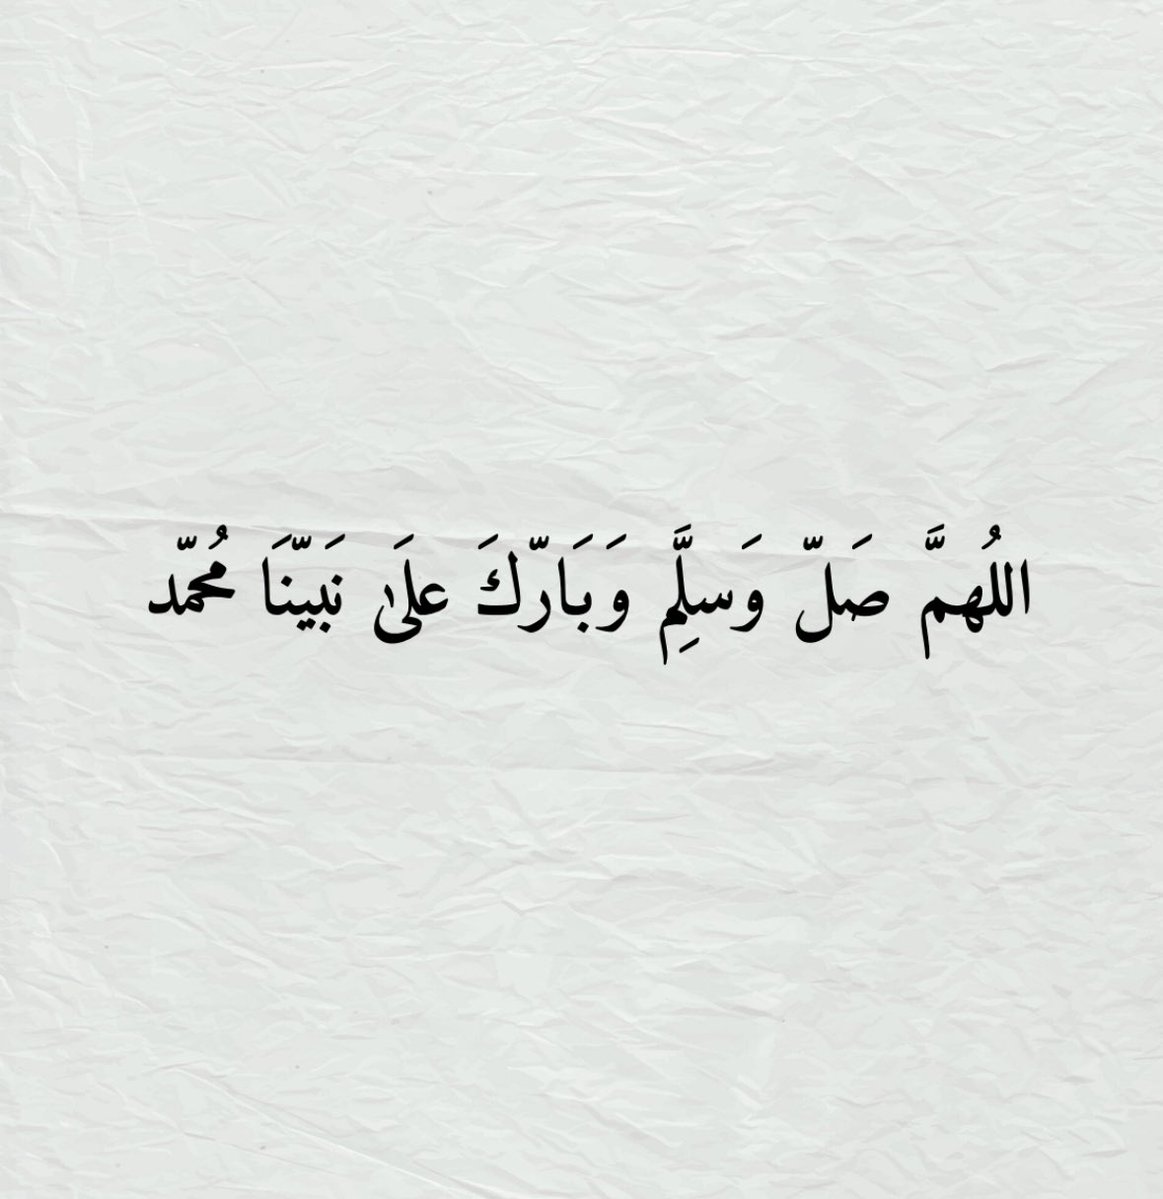 اللهُمَّ صَلّ وَسلِّم وَبَارّكَ علَىٰ نَبَيّنَا مُحمّد